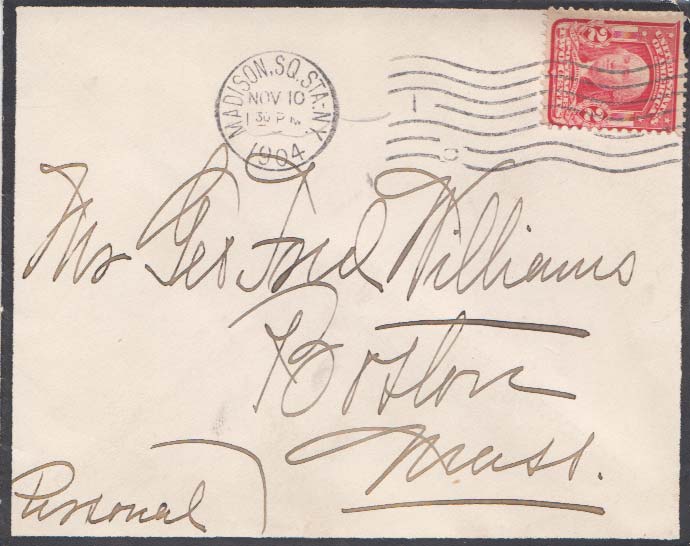 MADISON.SQ.STA-N.Y.
NOV 10
1 30 P M
1904
2 2
Mr Geo Fred Williams
Boston
Mass.
Personal